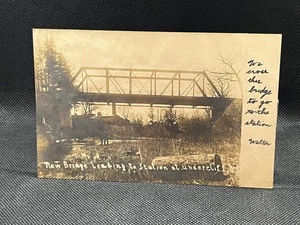 We
cross
this
bridge
to go
to the
station
Walter
New Bridge Leading To Station at Undercliff